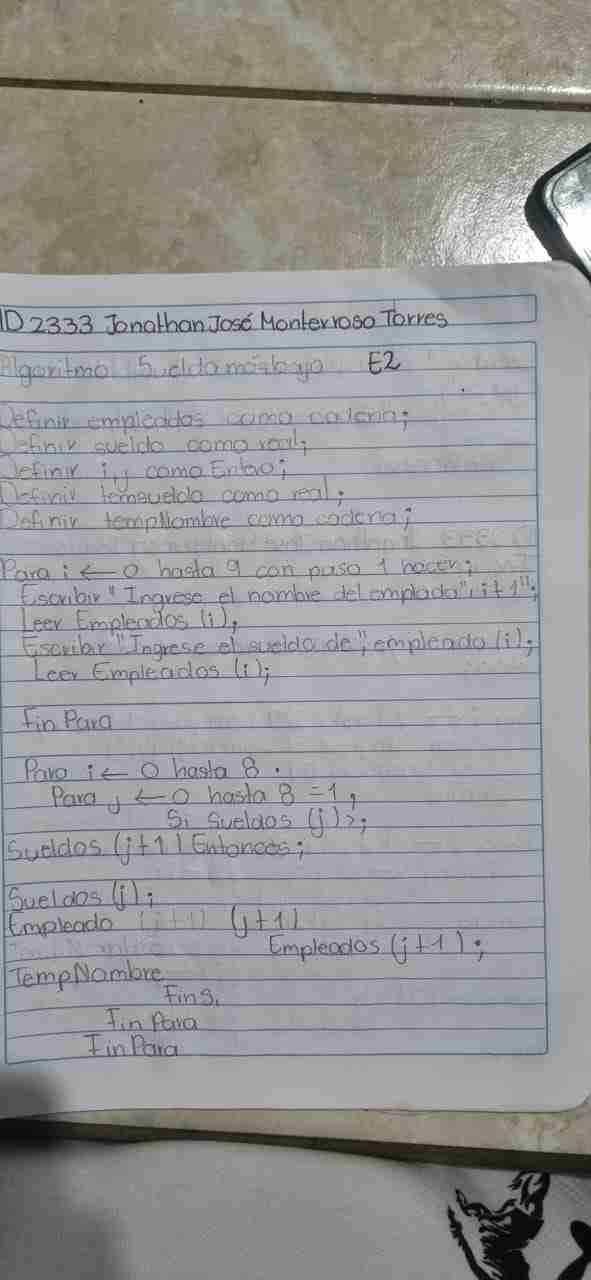 ID 2333 Jonathan José Monterroso Torres
Algoritmo Sueldo más bajo E2
Definir empleados como cadena;
Definir sueldo como real;
Definir i, j como Entero;
Definir temsueldo como real;
Definir tempNombre como cadena;
Para i ← 0 hasta 9 con paso 1 hacer;
Escribir "Ingrese el nombre del emplado", i + 1";
Leer Empleados (i),
Escribir "Ingrese el sueldo de", empleado (i);
Leer Empleados (i);
Fin Para
Para i ← 0 hasta 8.
Para j ← 0 hasta 8 = 1,
Si Sueldos (j) >;
Sueldos (j + 1) Entonces;
Sueldos (j);
Empleado (j + 1) (j + 1)
Empleados (j + 1);
TempNombre
Fin Si
Fin Para
Fin Para